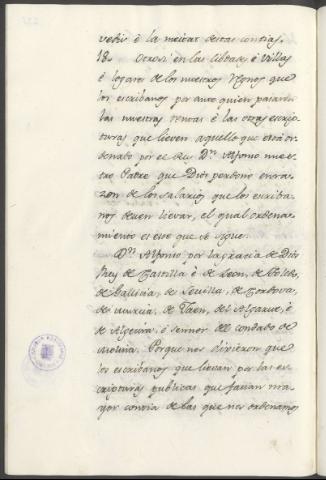 vebir è la meitat destas contias.
18. Otrosi en las cibdades, è villas
è logares de los nuestros Regnos que
los escribanos por ante quien pasaren
las nuestras rentas è las otras escrip-
turas que lieven aquello que està or-
denado por el Rey Dn. Alfonso nues-
tro Padre que Dios perdone en ra-
zon de los salarios que los escriba-
nos deven llevar, el qual ordena-
miento es este que se sigue.
Dn. Alfonso por la gracia de Dios
Rey de Castilla è de Leon, de Toledo,
de Gallicia, de Sevilla, de Cordova,
de Murcia, de Jaen, del Algarve, è
de Algecira, è sennor del condado de
Molina. Porque nos dixieron que
los escribanos que llevan por las es-
cripturas publicas que facian ma-
yor contia de las que nos ordenamos